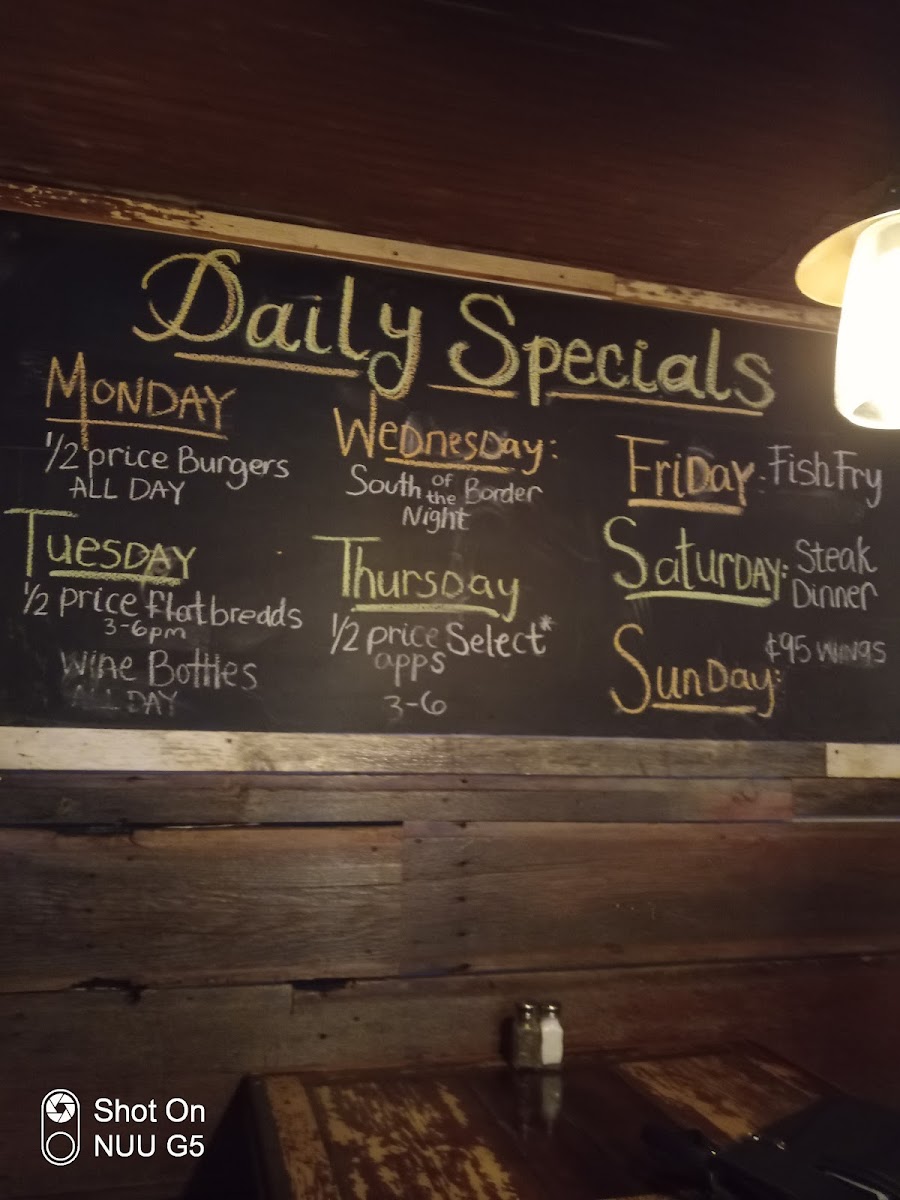 Daily Specials
MONDAY
1/2 price Burgers
ALL DAY
TUESDAY
1/2 price flatbreads
3-6pm
Wine Bottles
ALL DAY
WeDNesDay:
South of the Border
Night
ThursDay
1/2 price Select*
apps
3-6
FriDay: Fish Fry
SaturDAY: Steak
Dinner
SunDay: ¢95 WINGS
Shot On
NUU G5